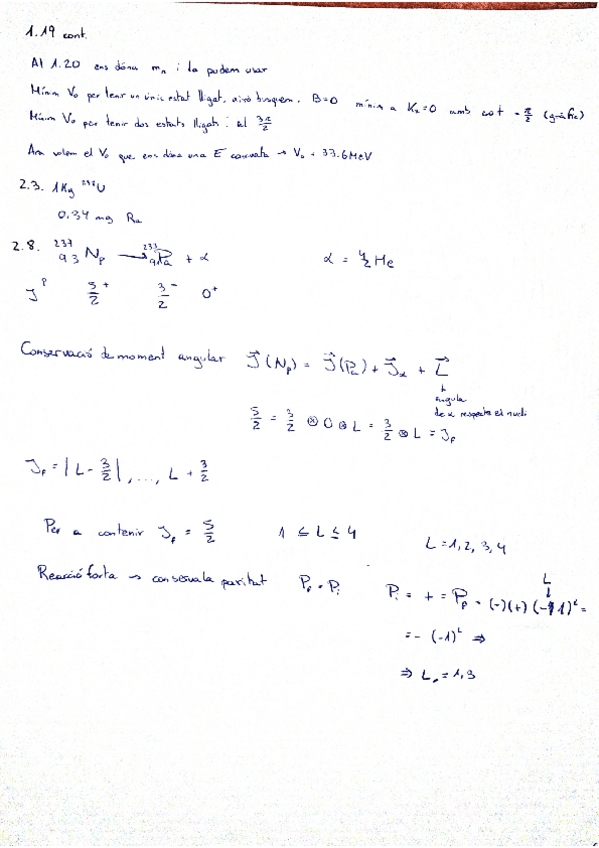 1.19 cont.
Al 1.20 ens dóna m_n i la podem usar
Mínim V₀ per tenir un únic estat lligat, això busquem, B=0 mínim a K₂=0 amb cot = π/2 (gràfic)
Mínim V₀ per tenir dos estats lligats: el 3π/2
Ara volem el V₀ que ens dóna una E concreta → V₀ = 33.6 MeV
2.3. 1Kg ²³⁸U
0.34 mg Ra
2.8. ²³⁷₉₃Np → ²³³₉₁Pa + α α = ⁴₂He
J^P 5/2⁺ 3/2⁻ 0⁺
Conservació de moment angular J⃗(Np) = J⃗(Pa) + J⃗_α + L⃗
angular
de α respecte el nucli
5/2 = 3/2 ⊗ 0 ⊗ L = 3/2 ⊗ L = J_f
J_f = |L - 3/2|, ..., L + 3/2
Per a contenir J_f = 5/2 1 ≤ L ≤ 4 L = 1, 2, 3, 4
Reacció forta → conserva la paritat P_f = P_i P_i = + = P_f = (-)(+)(-1)^L =
L
= - (-1)^L ⇒
⇒ L = 1, 3